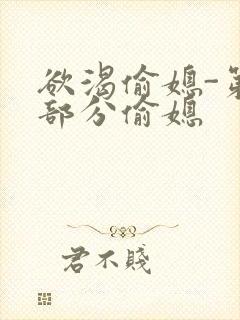 欲渴偷媳-第
部分偷媳
君不賤